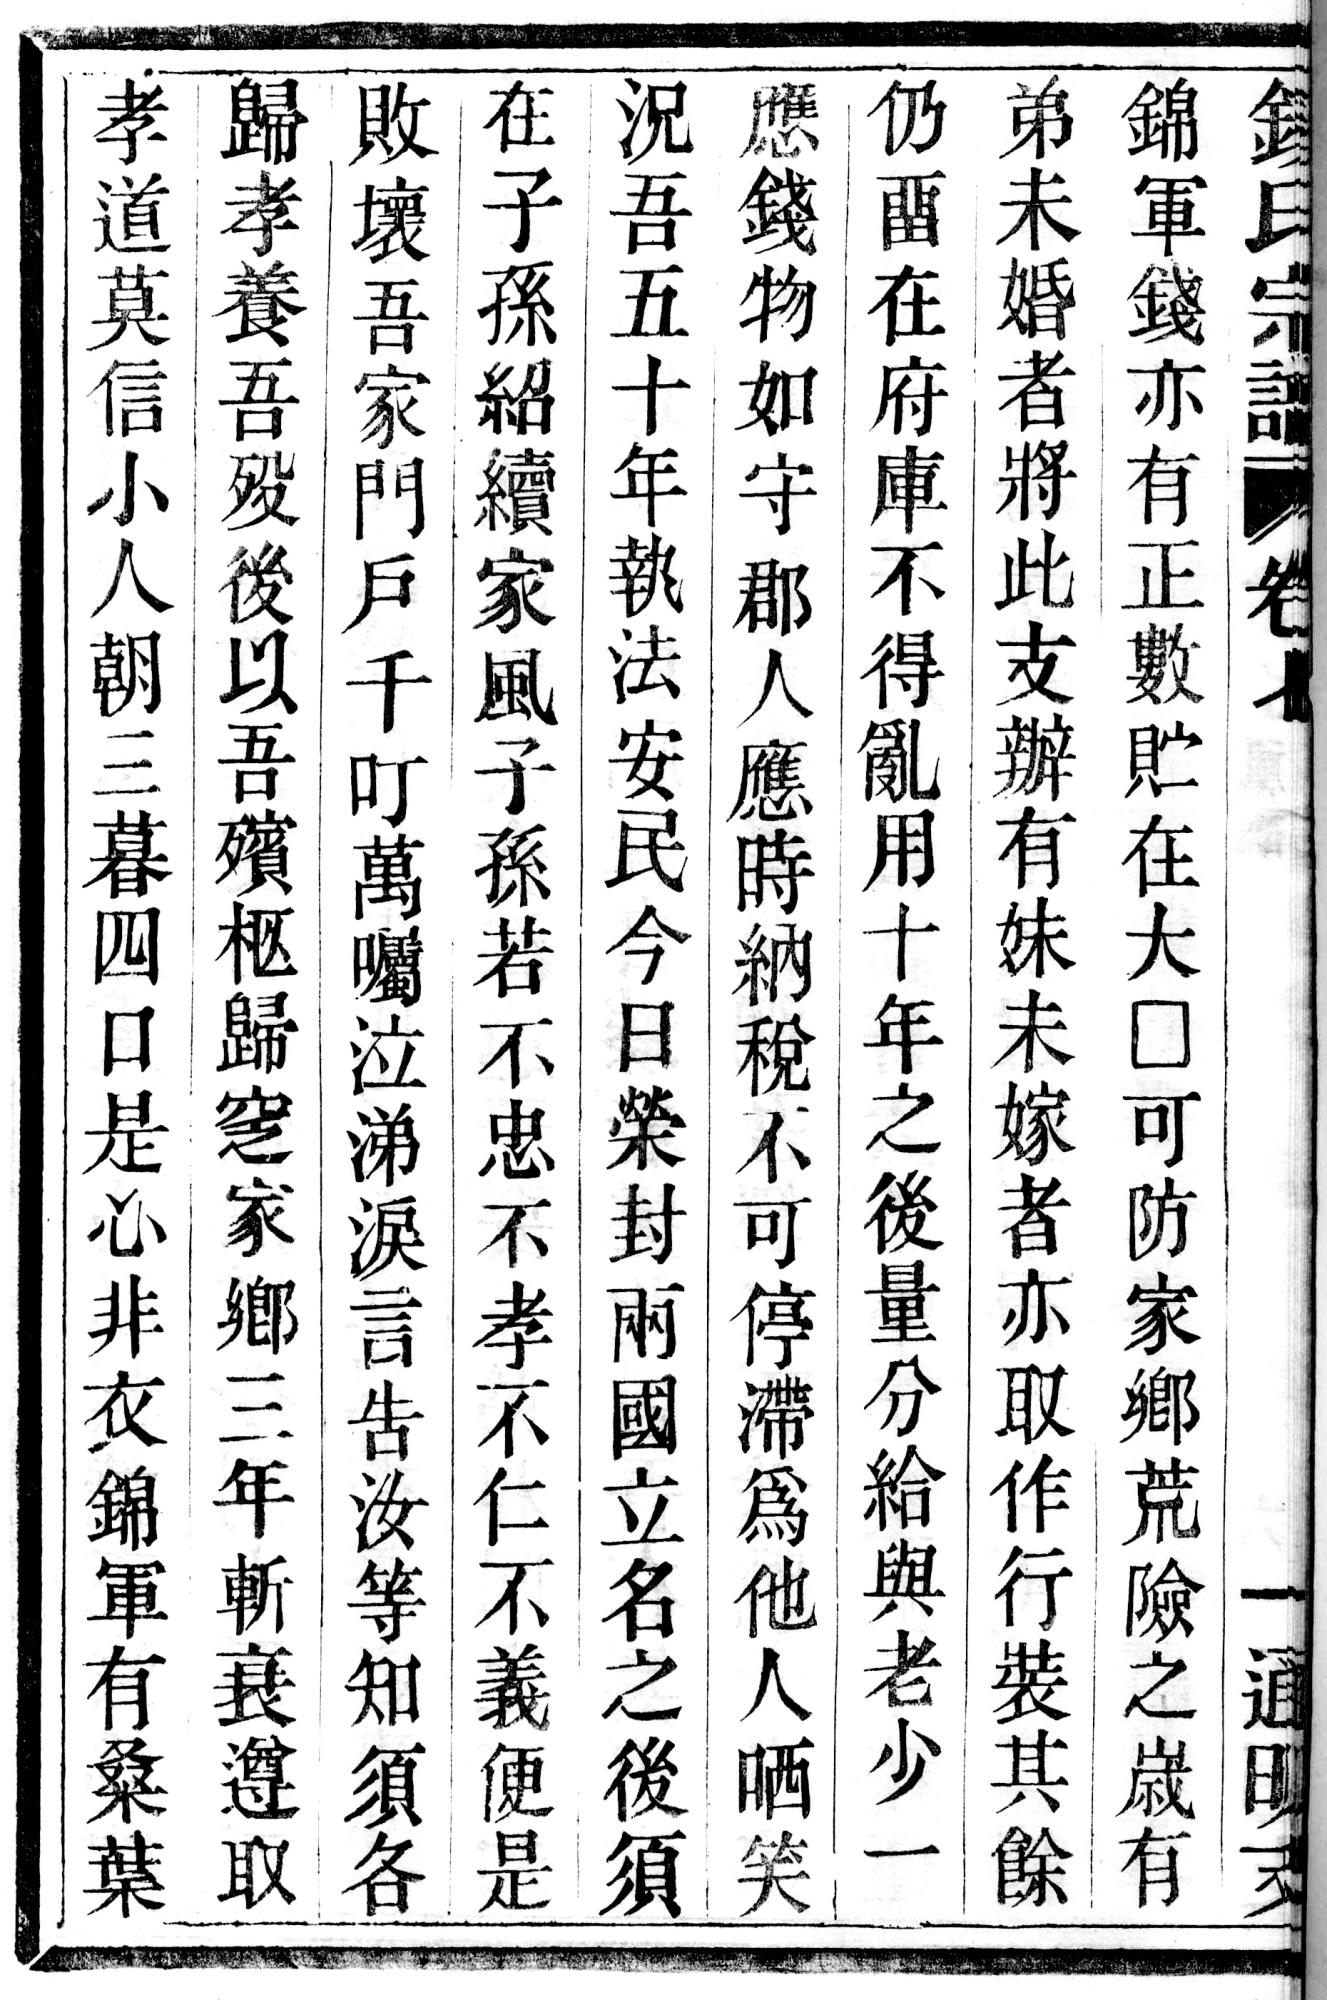 錢氏宗譜 卷 一 通明
錦軍錢亦有正數貯在大□可防家鄉荒險之歲有
弟未婚者將此支辦有妹未嫁者亦取作行裝其餘
仍畱在府庫不得亂用十年之後量分給與老少一
應錢物如守郡人應時納稅不可停滯爲他人哂笑
況吾五十年執法安民今日榮封兩國立名之後須
在子孫紹續家風子孫若不忠不孝不仁不義便是
敗壞吾家門戶千叮萬囑泣涕淚言告汝等知須各
歸孝養吾歿後以吾殯柩歸窆家鄉三年斬衰遵取
孝道莫信小人朝三暮四口是心非衣錦軍有桑葉